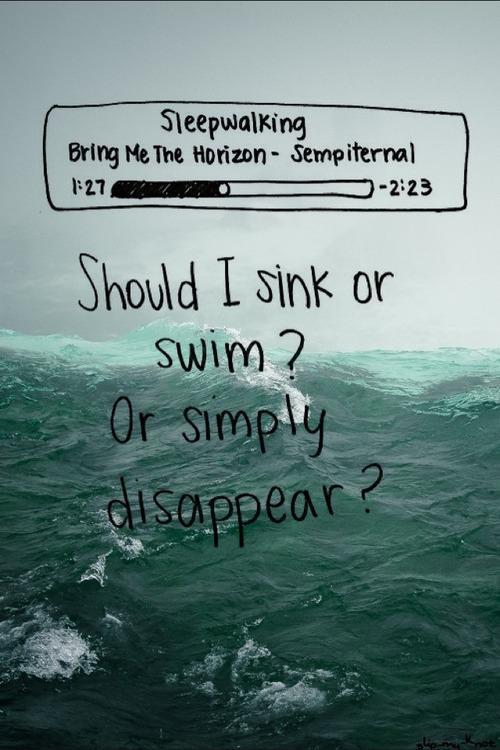 Sleepwalking
Bring Me The Horizon - Sempiternal
1:27 -2:23
Should I sink or
swim?
Or simply
disappear?